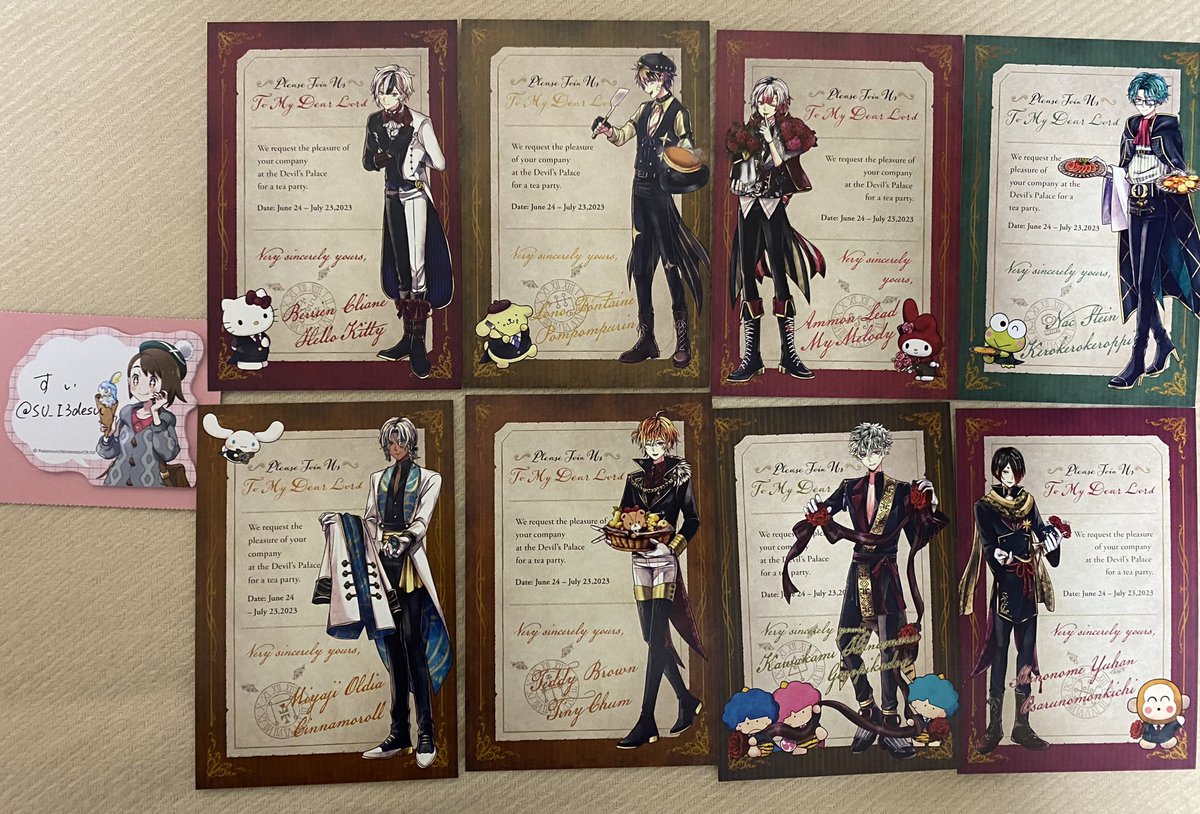 Please Join Us
To My Dear Lord
We request the pleasure of
your company
at the Devil's Palace
for a tea party.
Date: June 24 – July 23,2023
Very sincerely yours,
Berrien Cliane
Hello Kitty
Please Join Us
To My Dear Lord
We request the pleasure
of your company
at the Devil's Palace
for a tea party.
Date: June 24 – July 23,2023
Very sincerely yours,
Lono Fontaine
Pompompurin
Please Join Us
To My Dear Lord
We request the pleasure of
your company
at the Devil's Palace
for a tea party.
Date: June 24 – July 23,2023
Very sincerely
yours,
Ammon Lead
My Melody
Please Join Us
To My Dear Lord
We request the
pleasure of
your company at the
Devil's Palace for a
tea party.
Date: June 24 – July 23,2023
Very sincerely yours,
Nac Stein
Kerokerokeroppi
すい
@SU_I3desu
Please Join Us
To My Dear Lord
We request the
pleasure of your
company
at the Devil's Palace
for a tea party.
Date: June 24
– July 23,2023
Very sincerely yours,
Miyaji Oldia
Cinnamoroll
Please Join Us
To My Dear Lord
We request the pleasure of
your company
at the Devil's Palace
for a tea party.
Date: June 24 – July 23,2023
Very sincerely yours,
Teddy Brown
Tiny Chum
Please Join Us
To My Dear Lord
We request the
pleasure of
your company
at the Devil's Palace
for a tea party.
Date: June 24 – July 23,20
Very sincerely yours,
Please Join Us
To My Dear Lord
We request the pleasure
of your company
at the Devil's Palace
for a tea party.
Date: June 24 – July 23,2023
Very sincerely yours,
Shinonome Yuhan
Osarunomonkichi